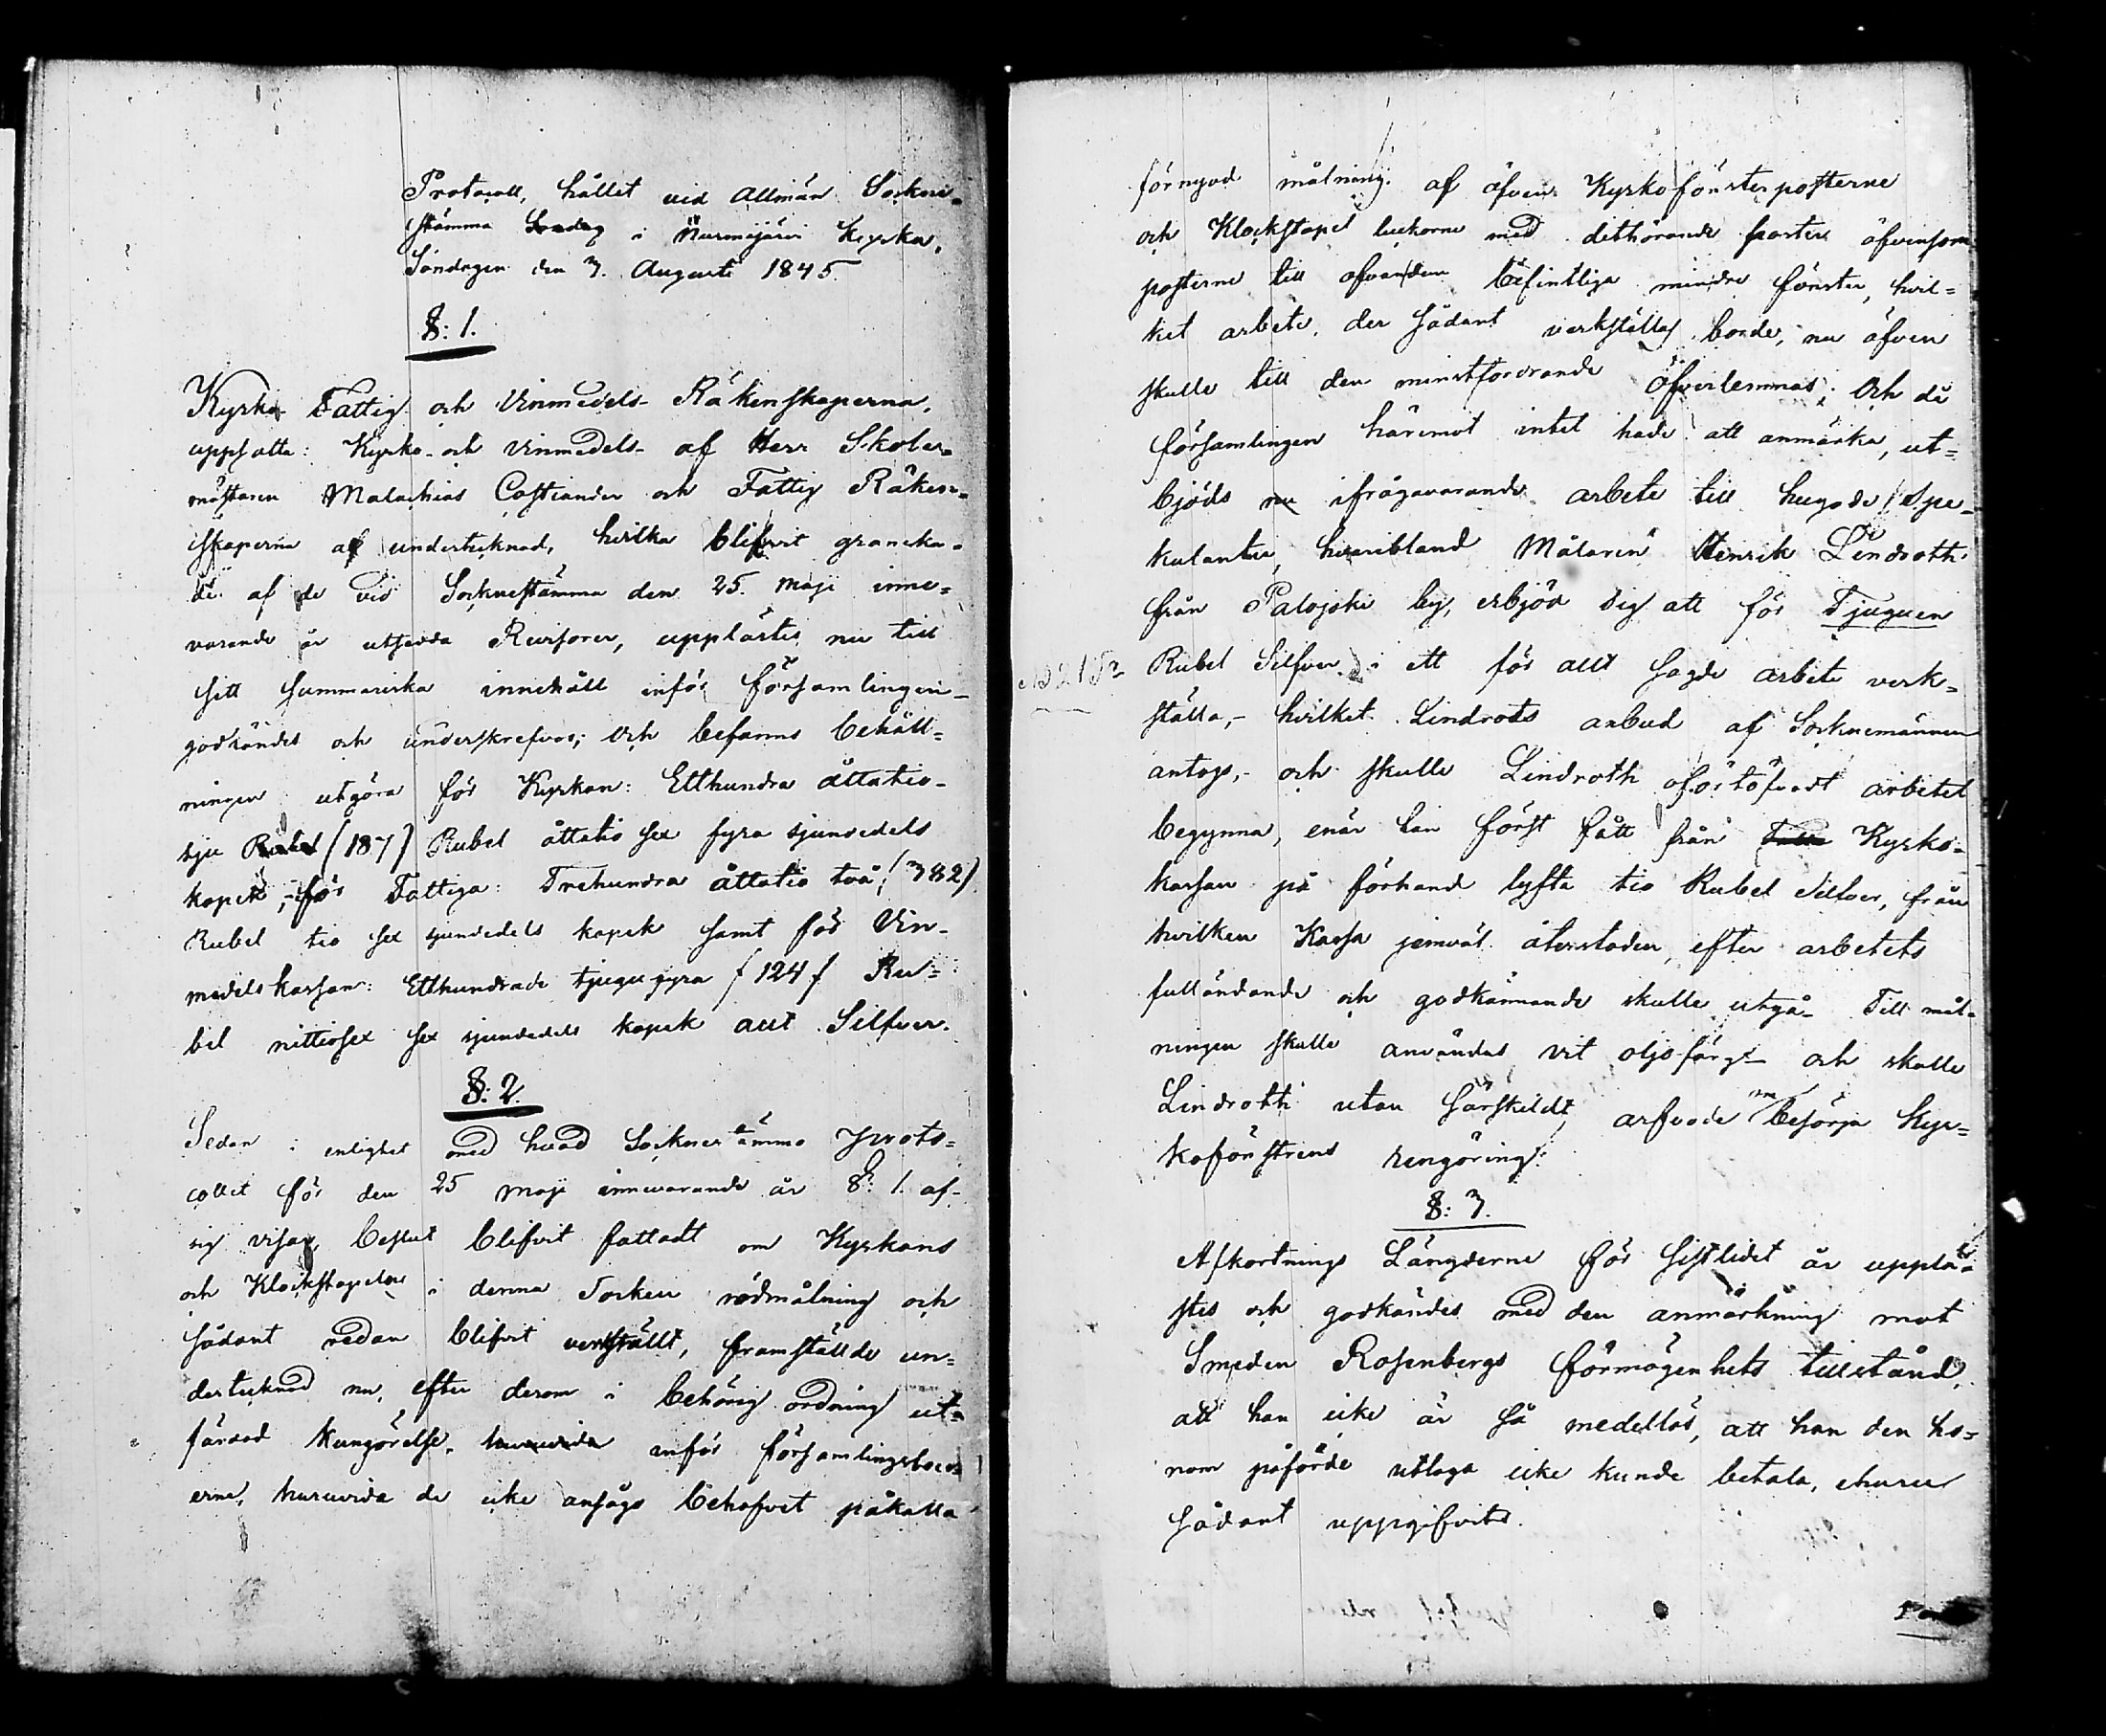 Protocoll, hållet vid Allmän Sockne-
stämma Sondag i Nurmijärvi Kyrka,
Söndagen den 3. Augusti 1845.
§: 1.
Kyrko- Fattig- och Vinmedels- Räkenskaperna,
uppsatta: Kyrko- och Vinmedels- af Herr Skolä-
mästaren Malachias Costiander och Fattig Räken-
skaperna af undertecknad, hvilka blifvit granska-
de af de vid Socknestämma den 25. Maji inne-
varande år utsedda Revisorer, upplästes nu till
sitt summariska innehåll inför församlingen-
godkändes och underskrefvos; och befanns behåll-
ningen utgöra för Kyrkan: Etthundra åttatio-
sju Rubel (187) Rubel åttatio sex fyra sjundedels
kopek, för Fattiga: Trehundra åttatio två (382)
Rubel tio sex sjundedels kopek samt för Vin-
medelskassan: Etthundrade tjugufyra (124) Ru-
bel nittiosex sex sjundedels kopek allt Silfver.
§: 2.
Sedan i enlighet med hvad Socknestämmo Proto-
collet för den 25 Maji innevarande år §: 1. af-
sig visar, beslut blifvit fattadt om Kyrkans
och Klockstapelns i denna Socken rödmålning och
sådant redan blifvit verkställt, framställde un-
dertecknad nu, efter derom i behörig ordning ut-
färdad kungörelse, huruvida inför församlingsboer-
erne, huruvida de icke ansågo behofvet påkalla
förnyad målning af äfven Kyrkofönsterposterne
och Klockstapel luckorne med dithörande poster äfvensom
posterne till ofvandem befintliga mindre fönster, hvil-
ket arbete, der sådant verkställas borde, nu äfven
skulle till den minstfordrande öfverlemnas; och då
församlingen häremot intet hade att anmärka, ut-
bjöds nu ifrågavarande arbete till hugade Spe-
kulanter, hvaribland Målaren Henrik Lindroth
från Palojoki by, erbjöd sig att för Tjuguen
N:B 21 Sr
Rubel Silfver i ett för allt sagde arbete verk-
ställa,- hvilket Lindroths anbud af Socknemännen
antogs,- och skulle Lindroth ofördröjvadt arbetet
begynna, enär han först fått från Kyrko-
kassan på förhand lyfta tio Rubel Silfver, från
hvilken Kassa jemväl återstoden, efter arbetets
fulländande och godkännande skulle utgå. Till mål-
ningen skulle användas vit oljefärg och skulle
Lindroth utan särskildt arfvode om besörja Kyr-
kofönstrens rengöring.
§: 3.
Afkortnings Längderne för sistlidet år upplä-
stes och godkändes med den anmärkning mot
Smeden Rosenbergs förmögenhets tillstånd,
att han icke är så medellös, att han den ho-
nom påförde utlaga icke kunde betala, ehuru
sådant uppgifvits.